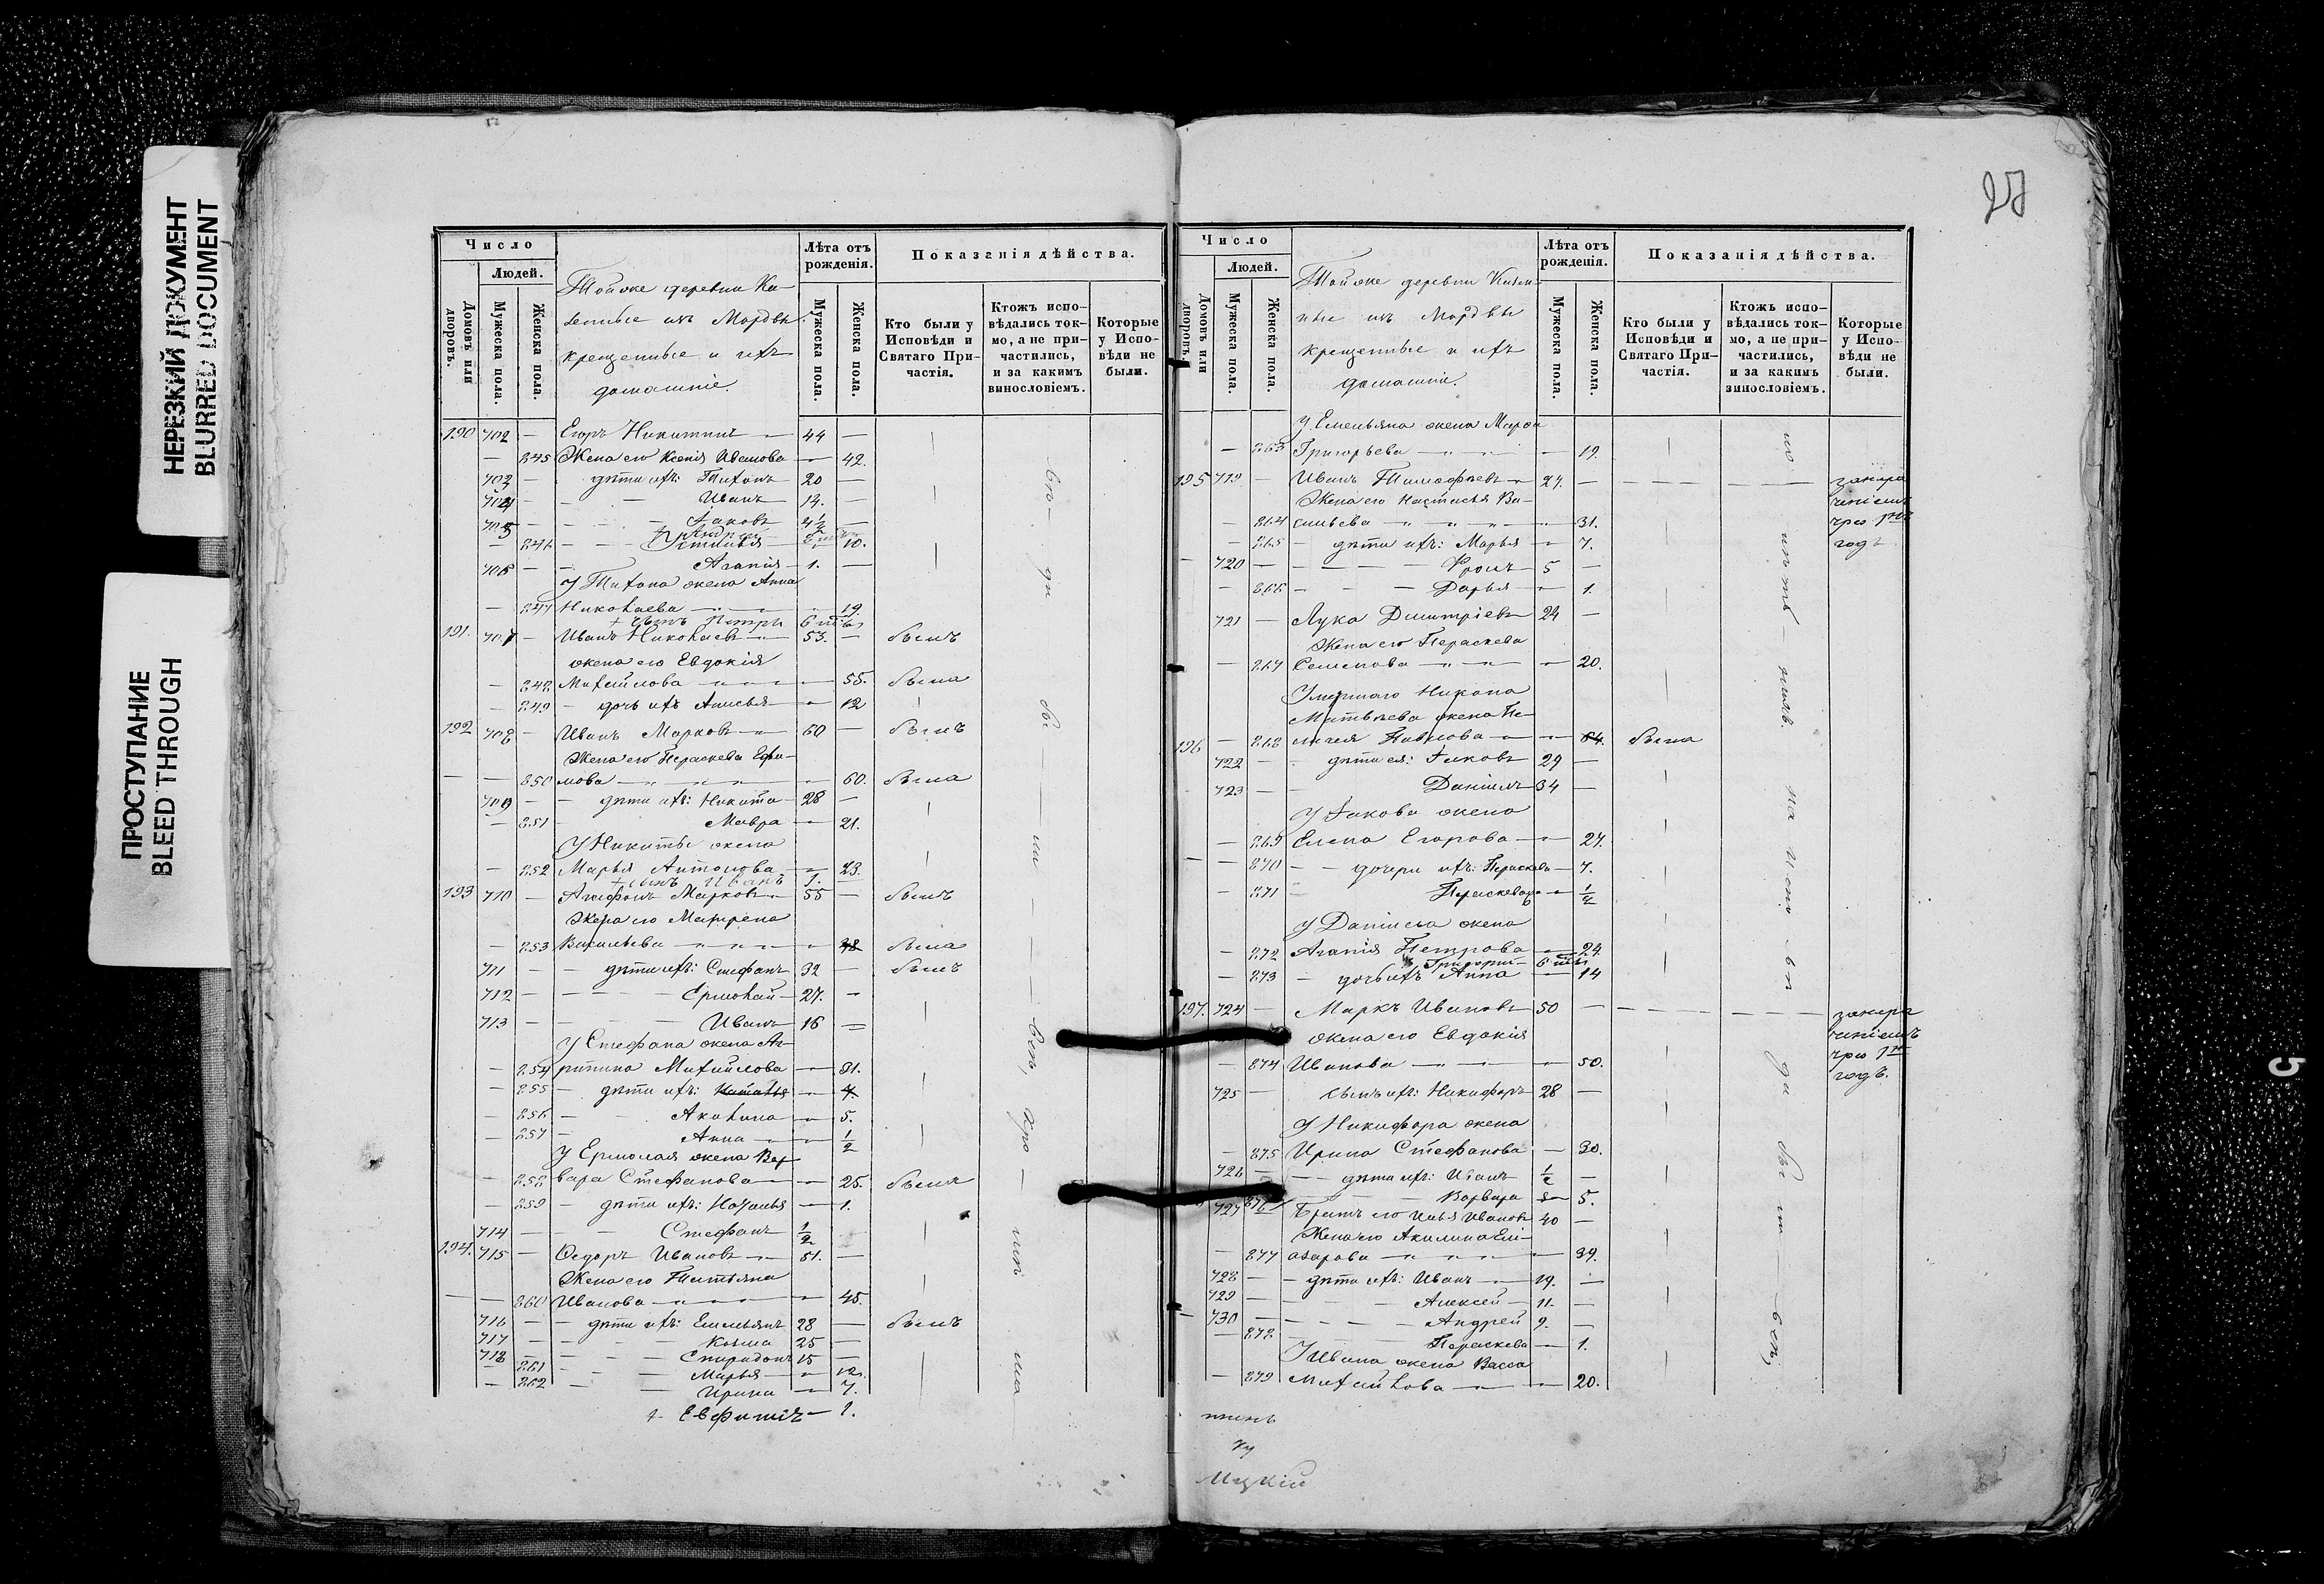 НЕРЕЗКИЙ ДОКУМЕНТ
BLURRED DOCUMENT
ПРОСТУПАНИЕ
BLEED THROUGH
Число
Людей.
Домовъ или дворовъ.
Мужеска пола.
Женска пола.
Тойже деревни Ка-
зенные изъ Мордвы
крещенные и ихъ
домашніе.
Лѣта отъ рожденія.
Мужеска пола.
Женска пола.
Показанія дѣйства.
Кто были у Исповѣди и Святаго При-частія.
Ктожъ испо-вѣдались ток-мо, а не при-частились, и за какимъ винословіемъ.
Которые у Испо-вѣди не были.
190 702 — Егоръ Никитинъ — 44 —
— 245 Жена его Ксенія Иванова — 42.
703 — дѣти ихъ: Тихонъ 20 —
704 — Иванъ 14. —
705 — Іаковъ 4½ —
— 246 — Устинья — 10.
706 — Агапія — 1. —
У Тихона жена Анна
— 247 Николаева — 19
+ сынъ Петръ 6 
191. 707 — Иванъ Николаевъ — 53. — былъ
жена его Евдокія
— 248 Михайлова — 55. была
— 249 — дочь ихъ Анисья — 12
192 708 — Иванъ Марковъ — 60 — былъ
Жена его Параскева Ефи-
— — 250 мова — 60. была
709 — — дѣти ихъ: Никита — 28 —
— 251 — Мавра — 21.
У Никиты жена
— 252 Марья Антонова — 23.
+ сынъ Иванъ 1.
193 710 — Агафонъ Марковъ — 55 — былъ
Жена его Матрена
— 253 Васильева — 48 была
711 — — дѣти ихъ: Стефанъ 32 — былъ
712 — Ермолай — 27. —
713 — Иванъ 16 —
У Стефана жена Аг-
— 254 рипина Михайлова — 31.
— 255 — дѣти ихъ: Наталья — 7.
— 256 — Акилина — 5.
— 257 — Анна — ½
У Ермолая жена Вар-
— 258 вара Стефанова — 25. была
— 259 — дѣти ихъ: Наталья — 1.
714 — Стефанъ ½
194. 715 — Ѳедоръ Ивановъ — 51. —
Жена его Татьяна
— — 260 Иванова — 45.
716 — — дѣти ихъ: Емельянъ 28 — былъ
717 — Козма 25 —
718 — Спиридонъ 15 —
— 261 — Марья — 12.
— 262 — Ирина — 7.
+ Евфимій — 1.
27
Число
Людей.
Домовъ или дворовъ.
Мужеска пола.
Женска пола.
Тойже деревни Казен-
ные изъ Мордвы
крещенные и ихъ
домашніе.
Лѣта отъ рожденія.
Мужеска пола.
Женска пола.
Показанія дѣйства.
Кто были у Исповѣди и Святаго При-частія.
Ктожъ испо-вѣдались ток-мо, а не при-частились, и за какимъ винословіемъ.
Которые у Испо-вѣди не были.
У Емельяна жена Марѳа
— 263 Григорьева — 19.
195 719 — Иванъ Тимофѣевъ — 27. —
Жена его Настасья Ва-
— 264 сильева — 31.
— 265 — дѣти ихъ: Марья — 7.
720 — Фролъ — 5 —
— 266 — Дарья — 1.
721 — Лука Димитріевъ 24 —
Жена его Параскева
— 267 Семенова — 20.
Умершаго Никона
Матвѣева жена Пе-
196 — 268 лагея Павлова — 64. была
722 — дѣти ея: Іаковъ 29 —
723 — Даніилъ 34 —
У Іакова жена
— 269 Елена Егорова — 27.
— — 270 — дочери ихъ: Параскева — 7.
— 271 — Параскева — ½
У Даніила жена
— 272 Агапія Петрова — 24.
Григорій — 6
— 273 — дочь ихъ Анна — 14
197. 724 — Маркъ Ивановъ 50 —
жена его Евдокія
— 274 Иванова — 50.
725 — сынъ ихъ: Никифоръ 28 —
У Никифора жена
— 275 Ирина Стефанова — 30.
726 — — дѣти ихъ: Иванъ ½ —
276 Варвара — 5.
727 Братъ его Илья Ивановъ 40 —
Жена его Акилина Ели-
— 277 азарова — 39.
728 — — дѣти ихъ: Иванъ — 19. —
729 — Алексей — 11. —
730 — Андрей 9. —
— 278 — Параскева — 1.
У Ивана жена Васса
— 279 Михайлова — 20.
годъ.
годъ.
5